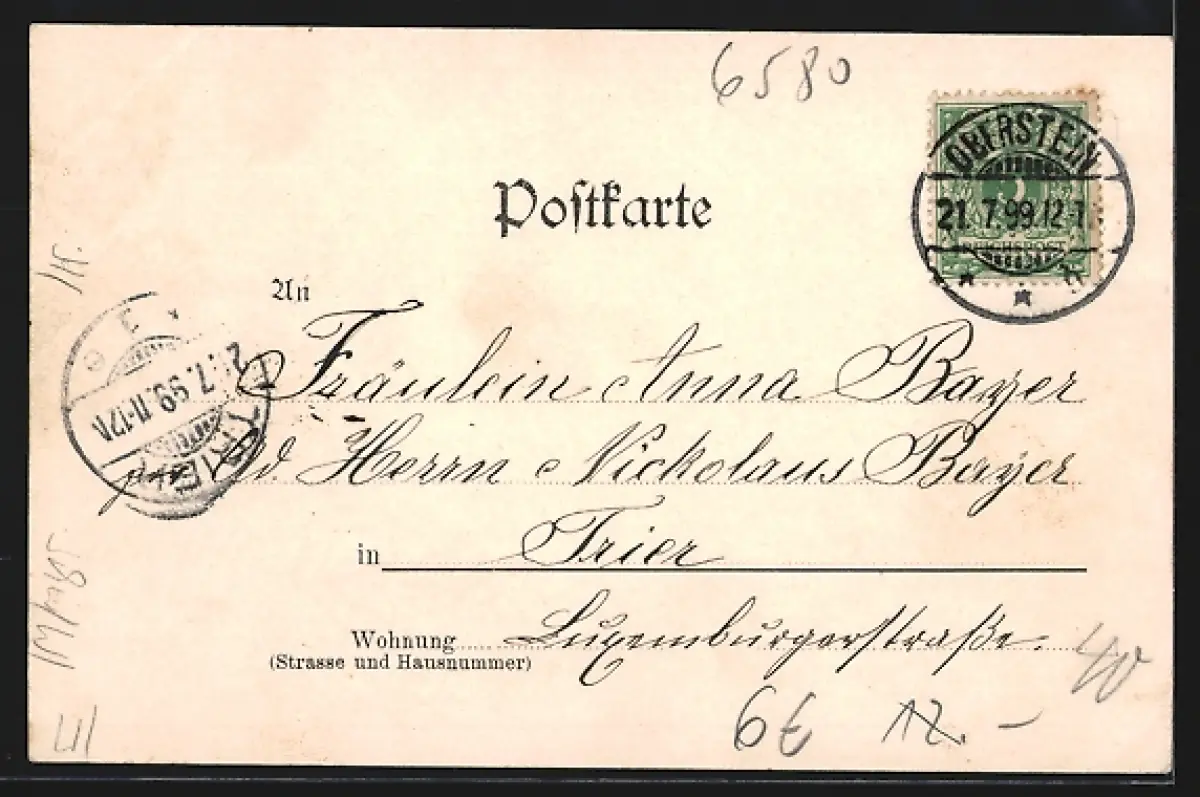 6580
OBERSTEIN
21.7.99.12-1
5
REICHSPOST
Postkarte
An
Fräulein Anna Bayer
Ad. Herrn Nickolaus Bayer
in Trier
Wohnung Luxemburgerstraße.
(Strasse und Hausnummer)
TRIER
7.99.11-12
40
6€ 12.-